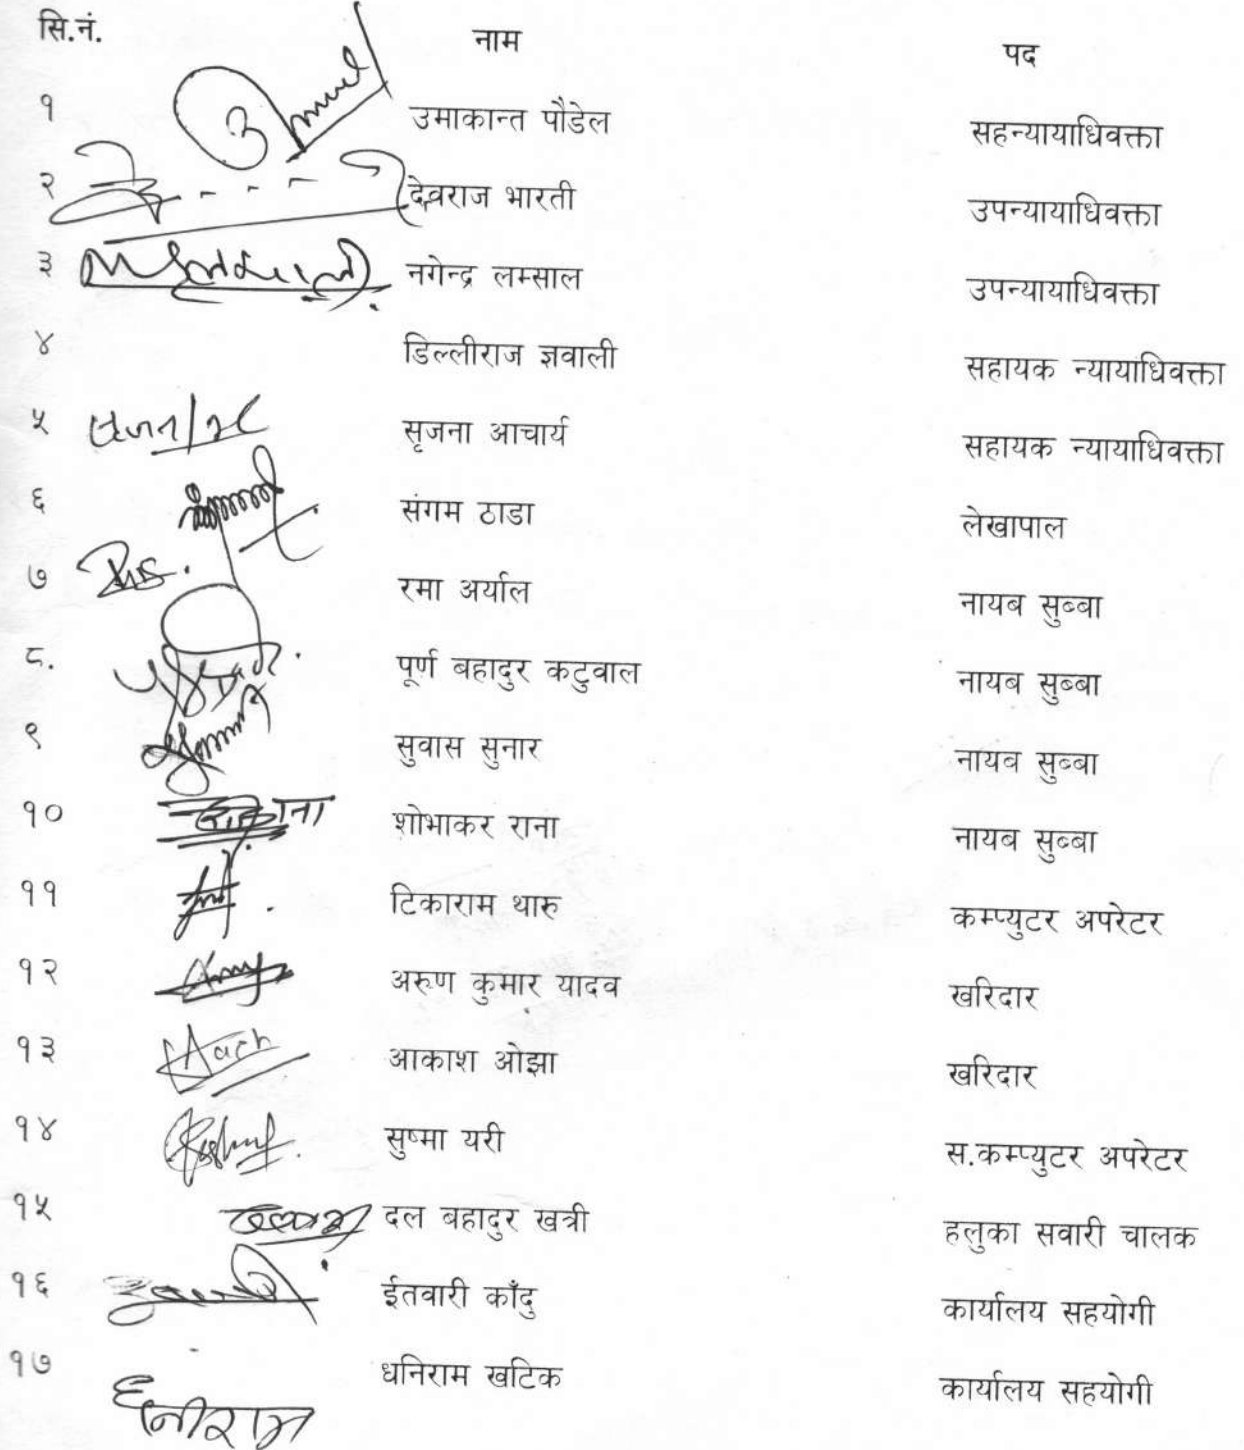 सि.नं. नाम पद
१ उमाकान्त पौडेल सहन्यायाधिवक्ता
२ देवराज भारती उपन्यायाधिवक्ता
३ नगेन्द्र लम्साल उपन्यायाधिवक्ता
४ डिल्लीराज ज्ञवाली सहायक न्यायाधिवक्ता
५ सृजना आचार्य सहायक न्यायाधिवक्ता
६ संगम ठाडा लेखापाल
७ रमा अर्याल नायब सुब्बा
८. पूर्ण बहादुर कटुवाल नायब सुब्बा
९ सुवास सुनार नायब सुब्बा
१० शोभाकर राना नायब सुब्बा
११ टिकाराम थारु कम्प्युटर अपरेटर
१२ अरुण कुमार यादव खरिदार
१३ आकाश ओझा खरिदार
१४ सुष्मा यरी स.कम्प्युटर अपरेटर
१५ दल बहादुर खत्री हलुका सवारी चालक
१६ ईतवारी काँदु कार्यालय सहयोगी
१७ धनिराम खटिक कार्यालय सहयोगी
धनीराम